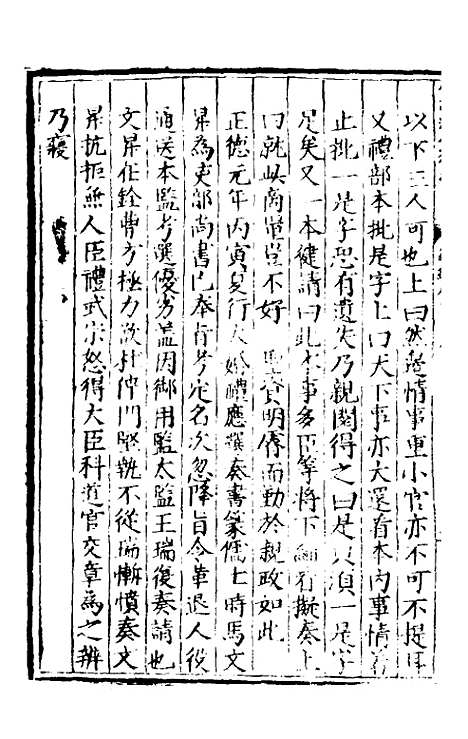 以下三人可也上曰然邊情事重小官亦不可不提耳
又禮部本批是字上曰天下事亦大還看本内事情若
止批一是字恐有遺失乃親閱得之曰是只須一是字
足矣又一本健請曰此本事多臣等將下細看擬奏上
曰就此商量豈不好聖資明睿而勤於親政如此
正德元年丙寅夏行大婚禮應選奏書篆儒士時馬文
昇為吏部尚書已奉旨考定名次忽降旨令革退人役
通送本監考選優劣蓋因御用監太監王瑞復奏請也
文昇在銓曹方極力欲抑倖門堅執不從瑞慚憤奏文
昇抗拒無人臣禮武宗怒得大臣科道官交章為之辨
乃寢